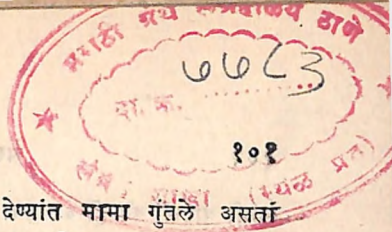 मराठी ग्रंथ संग्रहालय ठाणे
७७८३
दा. क. ............
१०१
(स्थळ प्रत)
देण्यांत मामा गुंतले असतां